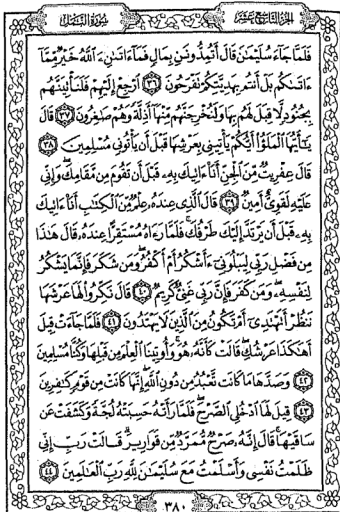 الجزء التاسع عشر
سورة النمل
فَلَمَّا جَآءَ سُلَيْمَٰنَ قَالَ أَتُمِدُّونَنِ بِمَالٍ فَمَآ ءَاتَىٰنِۦَ ٱللَّهُ خَيْرٌ مِّمَّآ
ءَاتَىٰكُم بَلْ أَنتُم بِهَدِيَّتِكُمْ تَفْرَحُونَ ﴿٣٦﴾ ٱرْجِعْ إِلَيْهِمْ فَلَنَأْتِيَنَّهُم
بِجُنُودٍ لَّا قِبَلَ لَهُم بِهَا وَلَنُخْرِجَنَّهُم مِّنْهَآ أَذِلَّةً وَهُمْ صَٰغِرُونَ ﴿٣٧﴾ قَالَ
يَٰٓأَيُّهَا ٱلْمَلَؤُا۟ أَيُّكُمْ يَأْتِينِى بِعَرْشِهَا قَبْلَ أَن يَأْتُونِى مُسْلِمِينَ ﴿٣٨﴾
قَالَ عِفْرِيتٌ مِّنَ ٱلْجِنِّ أَنَا۠ ءَاتِيكَ بِهِۦ قَبْلَ أَن تَقُومَ مِن مَّقَامِكَ ۖ وَإِنِّى
عَلَيْهِ لَقَوِىٌّ أَمِينٌ ﴿٣٩﴾ قَالَ ٱلَّذِى عِندَهُۥ عِلْمٌ مِّنَ ٱلْكِتَٰبِ أَنَا۠ ءَاتِيكَ
بِهِۦ قَبْلَ أَن يَرْتَدَّ إِلَيْكَ طَرْفُكَ ۚ فَلَمَّا رَءَاهُ مُسْتَقِرًّا عِندَهُۥ قَالَ هَٰذَا
مِن فَضْلِ رَبِّى لِيَبْلُوَنِىٓ ءَأَشْكُرُ أَمْ أَكْفُرُ ۖ وَمَن شَكَرَ فَإِنَّمَا يَشْكُرُ
لِنَفْسِهِۦ ۖ وَمَن كَفَرَ فَإِنَّ رَبِّى غَنِىٌّ كَرِيمٌ ﴿٤٠﴾ قَالَ نَكِّرُوا۟ لَهَا عَرْشَهَا
نَنظُرْ أَتَهْتَدِىٓ أَمْ تَكُونُ مِنَ ٱلَّذِينَ لَا يَهْتَدُونَ ﴿٤١﴾ فَلَمَّا جَآءَتْ قِيلَ
أَهَٰكَذَا عَرْشُكِ ۖ قَالَتْ كَأَنَّهُۥ هُوَ ۚ وَأُوتِينَا ٱلْعِلْمَ مِن قَبْلِهَا وَكُنَّا مُسْلِمِينَ
﴿٤٢﴾ وَصَدَّهَا مَا كَانَت تَّعْبُدُ مِن دُونِ ٱللَّهِ ۖ إِنَّهَا كَانَتْ مِن قَوْمٍ كَٰفِرِينَ
﴿٤٣﴾ قِيلَ لَهَا ٱدْخُلِى ٱلصَّرْحَ ۖ فَلَمَّا رَأَتْهُ حَسِبَتْهُ لُجَّةً وَكَشَفَتْ عَن
سَاقَيْهَا ۚ قَالَ إِنَّهُۥ صَرْحٌ مُّمَرَّدٌ مِّن قَوَارِيرَ ۗ قَالَتْ رَبِّ إِنِّى
ظَلَمْتُ نَفْسِى وَأَسْلَمْتُ مَعَ سُلَيْمَٰنَ لِلَّهِ رَبِّ ٱلْعَٰلَمِينَ ﴿٤٤﴾
٣٨٠